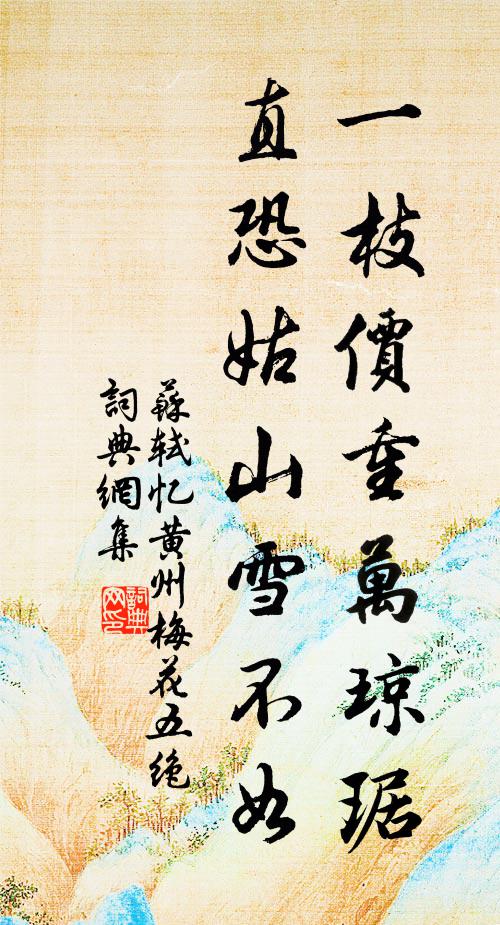 一枝價重萬琼琚
直恐姑山雪不如
蘇轼忆黄州梅花五绝
詞典網集
詞典网印